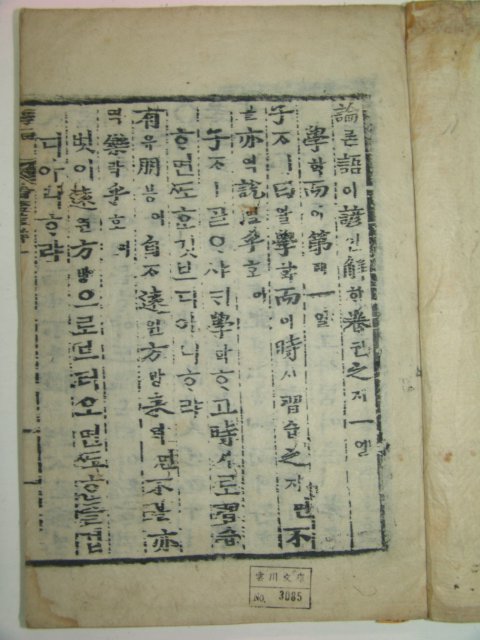 論론語어諺언解ᄒᆡ卷권之지一일
學ᄒᆞᆨ而이第뎨一일
子ᄌᆞㅣ曰왈學ᄒᆞᆨ而이時시習습之지면不
블亦역說열乎호아
子ᄌᆞㅣᄀᆞᆯᄋᆞ샤ᄃᆡ學ᄒᆞᆨᄒᆞ고時시로習습
ᄒᆞ면ᄯᅩᄒᆞᆫ깃브디아니ᄒᆞ랴
有유朋붕이自ᄌᆞ遠원方방來ᄅᆡ면不블亦
역樂락乎호아
벗이遠원方방으로브터오면ᄯᅩᄒᆞᆫ즐겁
디아니ᄒᆞ랴
雲川文庫
No. 3085